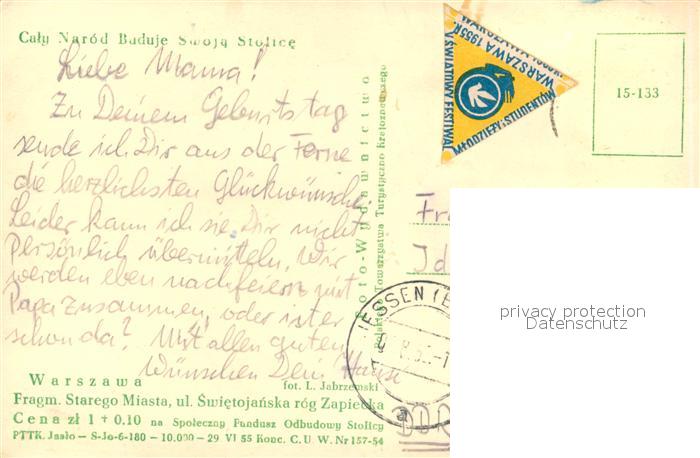 Cały Naród Buduje Swoją Stolicę
Liebe Mama!
Zu Deinem Geburtstag
sende ich Dir aus der Ferne
die herzlichsten Glückwünsche.
Leider kann ich sie Dir nicht
persönlich übermitteln. Wir
werden eben nachfeiern mit
Papa zusammen, oder ist er
schon da? Mit allen guten
Wünschen Dein
Warszawa
fot. L. Jabrzemski
Fragm. Starego Miasta, ul. Świętojańska róg Zapiecka
Cena zł 1 + 0.10 na Społeczny Fundusz Odbudowy Stolicy
PTTK. Jasło — S-Jo-6-180 — 10.000 — 29 VI 55 Konc. C. U. W. Nr 157-54
Foto-Wydawnictwo
Polskiego Towarzystwa Turystyczno Krajoznawczego
WARSZAWA 1955R.
WARSZAWA 1955R.
V ŚWIATOWY FESTIWAL
MŁODZIEŻY i STUDENTÓW
15-133
Fr
Jd
ESSEN
a
privacy protection
Datenschutz